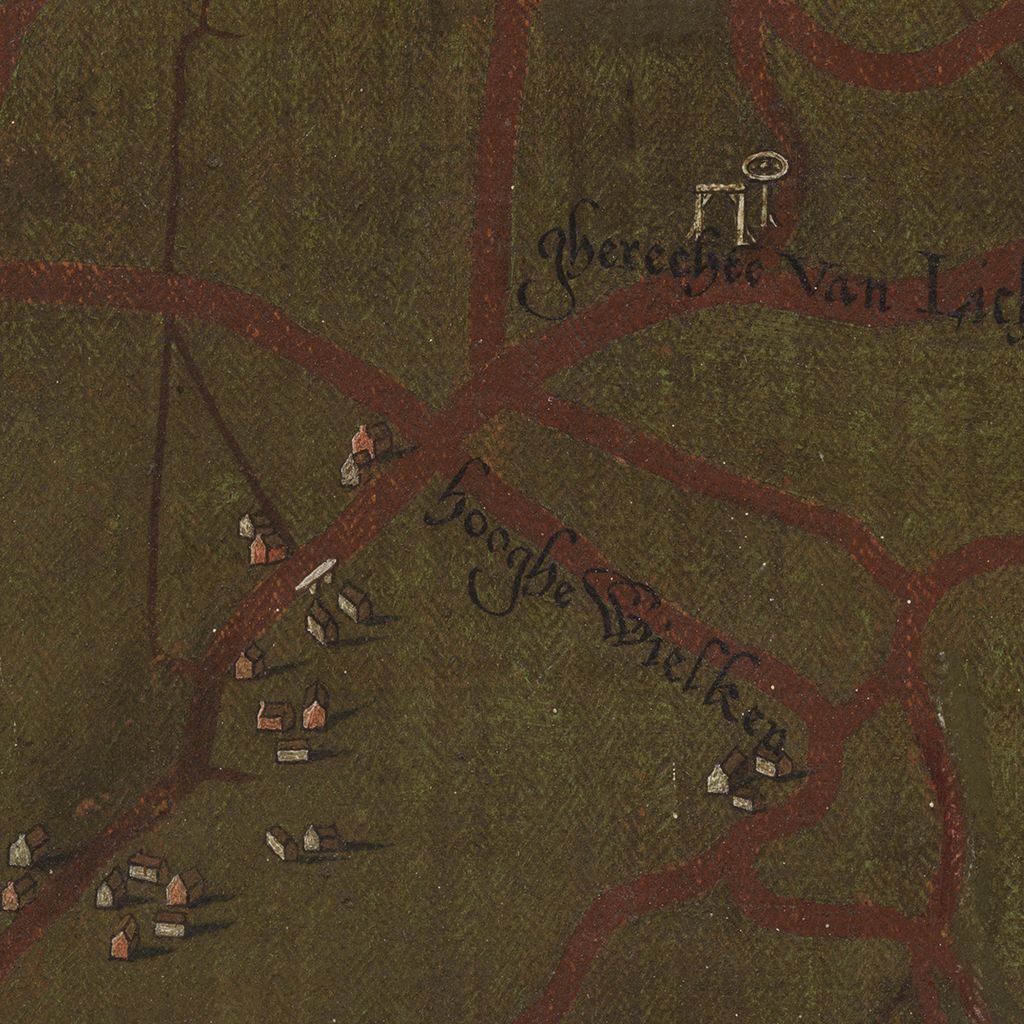 gherechte van Lich
hooghe Wielken